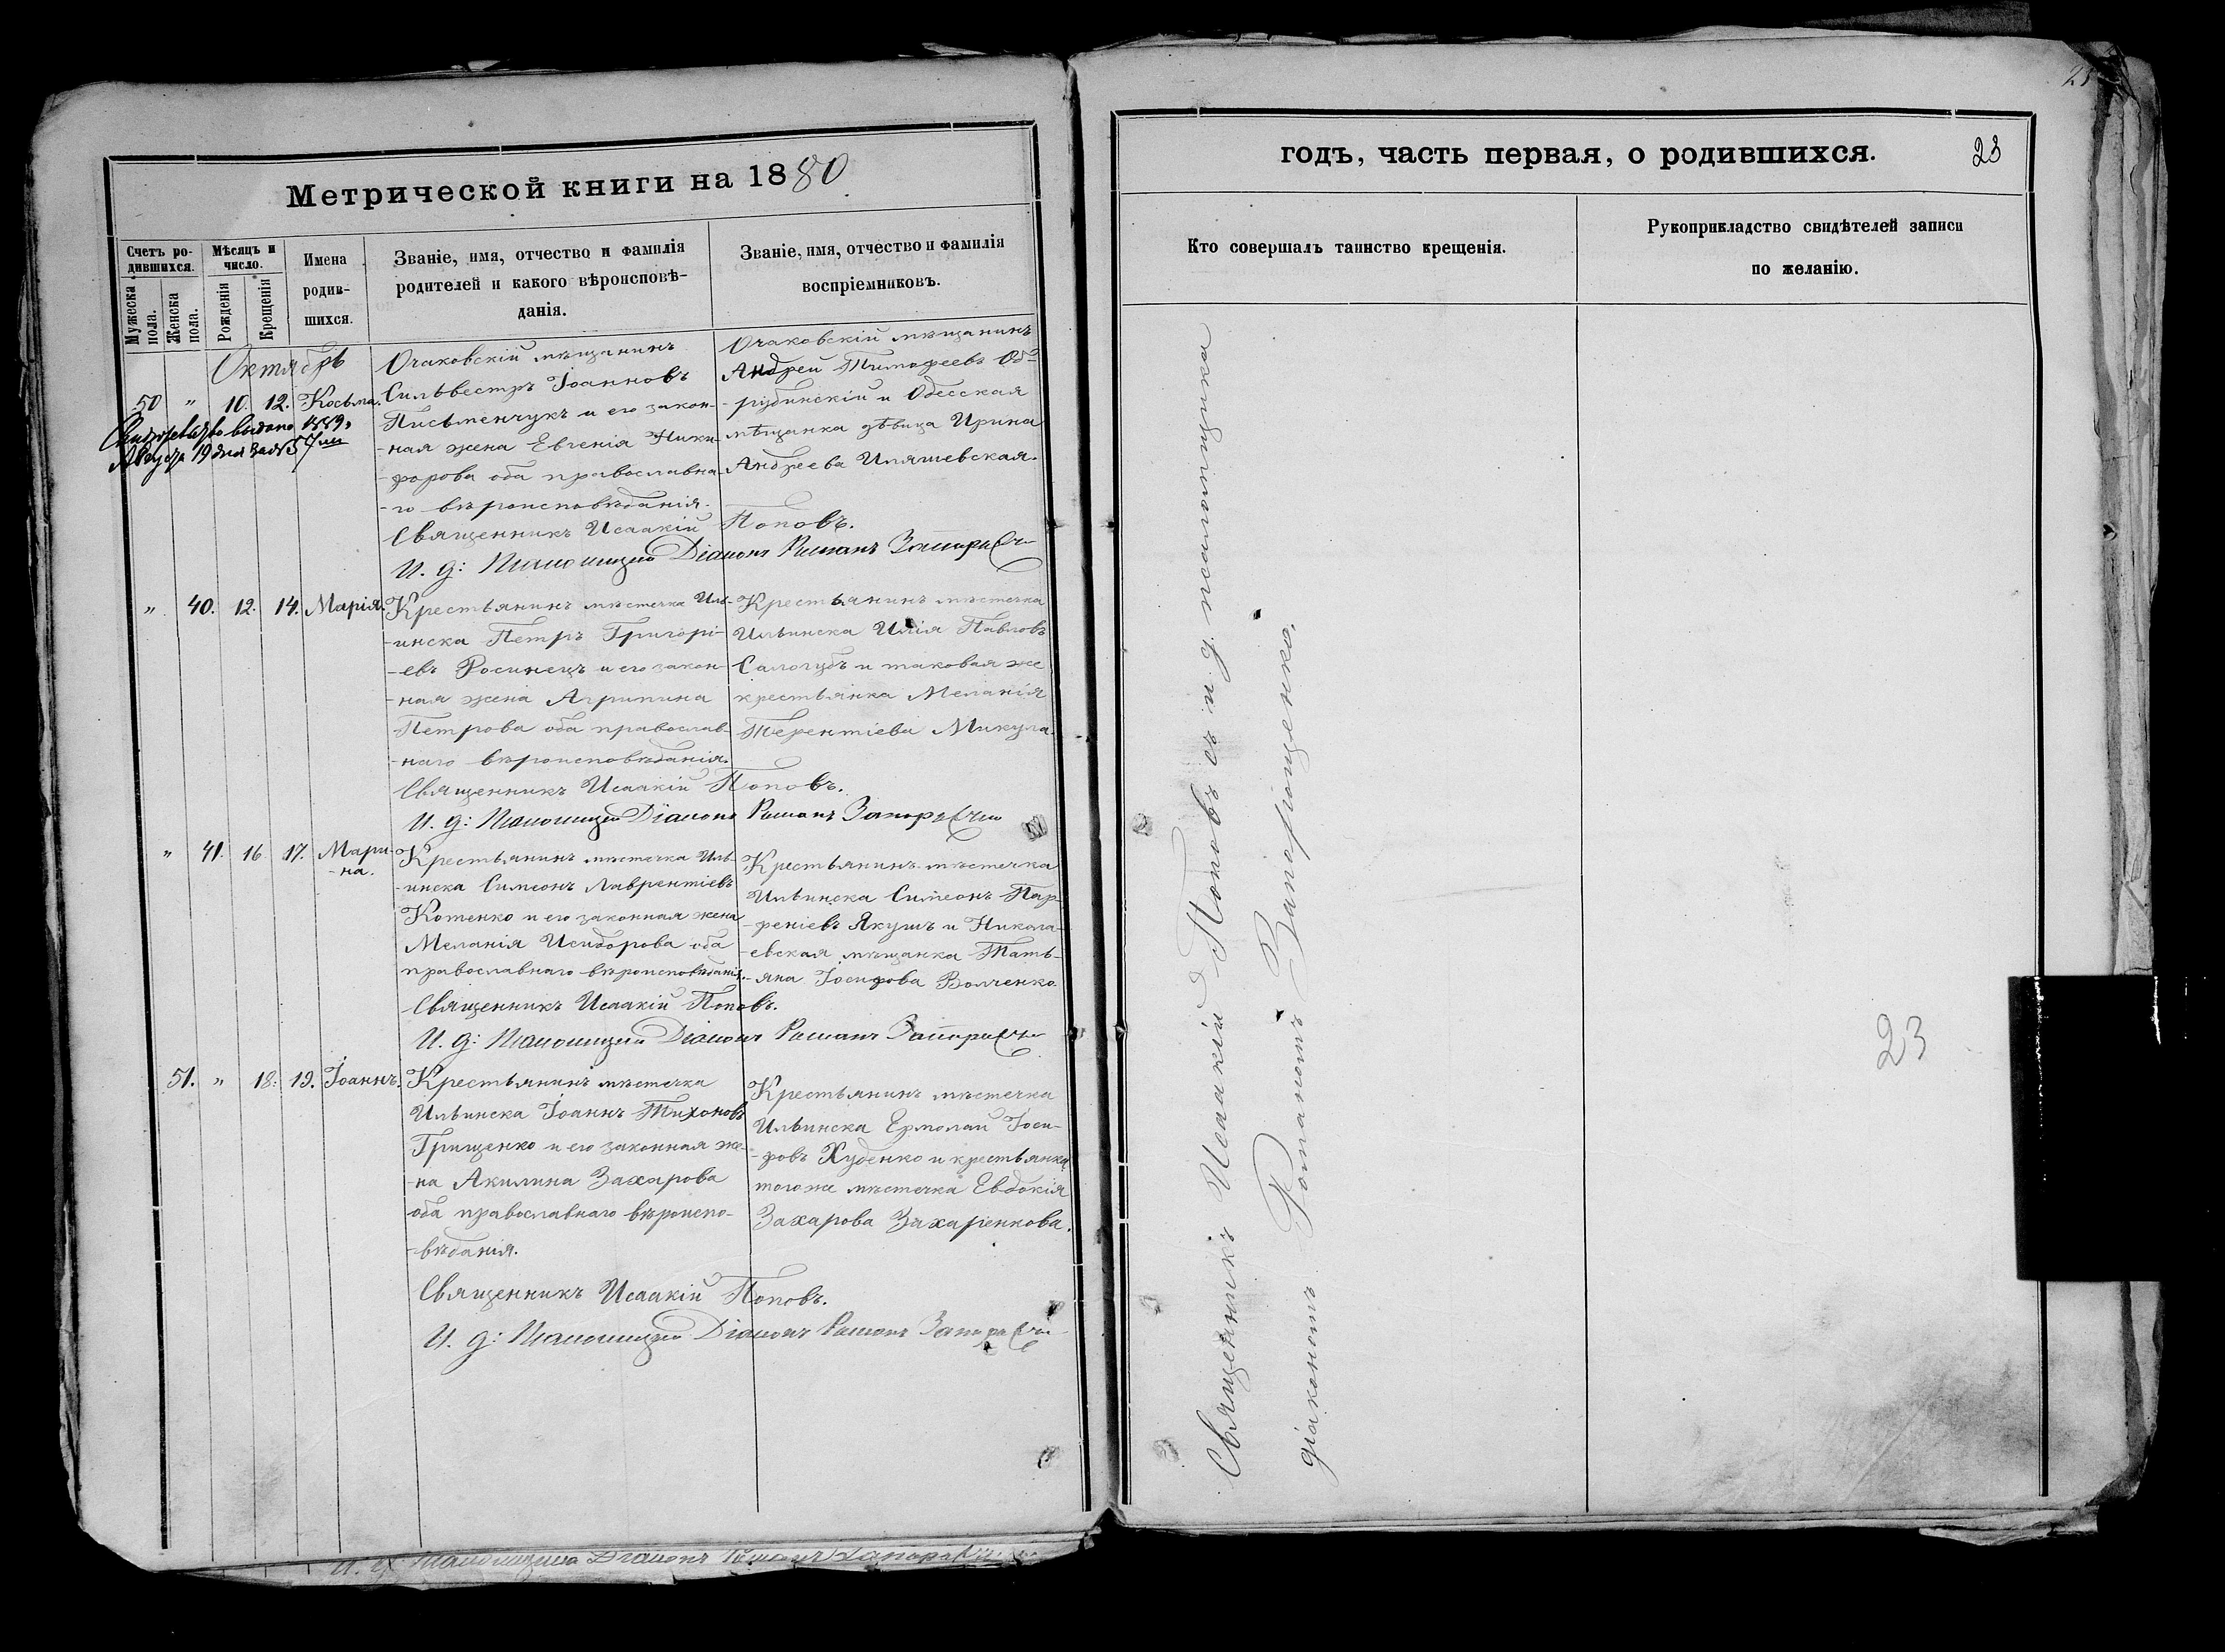 Метрической книги на 1880
Счетъ ро-
дившихся.
Мужеска пола.
Женска пола.
Мѣсяцъ и
число.
Рожденія
Крещенія
Имена
родив-
шихся.
Званіе, имя, отчество и фамилія
родителей и какого вѣроисповѣ-
данія.
Званіе, имя, отчество и фамилія
воспріемниковъ.
Октябрь
50 " 10. 12. Косьма.
Свидѣтельство выдано 1889
Августа 19 дня за №57
Очаковскій мѣщанинъ
Сильвестръ Іоанновъ
Письменчукъ и его закон-
-ная жена Евгенія Ники-
-форова оба православна-
-го вѣроисповѣданія.
Очаковскій мѣщанинъ
Андрей Тимофеевъ
и Одесская
мѣщанка дѣвица Ирина
Андреева Иляшевская.
Священникъ Исаакій Поповъ.
И. д: Псаломщика Діаконъ Романъ
" 40. 12. 14. Марія.
Крестьянинъ мѣстечка Иль-
-инска Петръ Григорі-
-евъ Росинецъ и его закон-
-ная жена Агрипина
Петрова оба православ-
-наго вѣроисповѣданія.
Крестьянинъ мѣстечка
Ильинска Илія Павловъ
Салогубъ и таковая же
крестьянка Меланія
Терентіева Микула.
Священникъ Исаакій Поповъ.
И. д: Псаломщика Діаконъ Романъ
" 41. 16. 17. Мари-
-на.
Крестьянинъ мѣстечка Иль-
-инска Симеонъ Лаврентіевъ
Котенко и его законная жена
Меланія Исидорова оба
православнаго вѣроисповѣданія.
Крестьянинъ мѣстечка
Ильинска Симеонъ Пар-
-феніевъ Якушъ и Никола-
-евская мѣщанка Тать-
-яна Іосифова Волченко.
Священникъ Исаакій Поповъ.
И. д: Псаломщика Діаконъ Романъ
51. " 18. 19. Іоаннъ.
Крестьянинъ мѣстечка
Ильинска Іоаннъ Тихоновъ
Грищенко и его законная же-
-на Акилина Захарова
оба православнаго вѣроиспо-
-вѣданія.
Крестьянинъ мѣстечка
Ильинска Ермолай Іоси-
-фовъ Худенко и крестьянка
тогоже мѣстечка Евдокія
Захарова Захаренкова.
Священникъ Исаакій Поповъ.
И. д: Псаломщика Діаконъ Романъ
И. д: Псаломщика Діаконъ Романъ
годъ, часть первая, о родившихся.
23
Кто совершалъ таинство крещенія.
Рукоприкладство свидѣтелей записи
по желанію.
Священникъ Исаакій Поповъ съ и. д. псаломщика
діакономъ Романомъ Запорощенко.
23